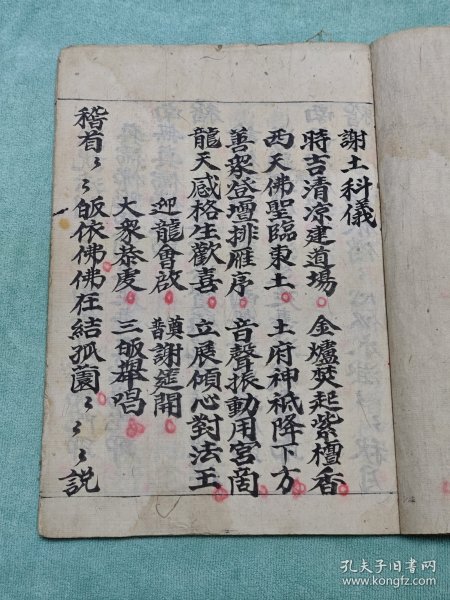 謝土科儀
時吉清凉建道場 金爐焚起紫檀香
西天佛聖臨東土 土府神祇降下方
善衆登壇排雁序 音聲振動用宮商
龍天感格生歡喜 立展傾心對法王
迎龍會啟 奠謝筵開
大衆恭虔 三皈舉唱
稽首〻〻皈依佛佛在結孤薗〻〻〻説
孔夫子旧书网
www.kongfz.com